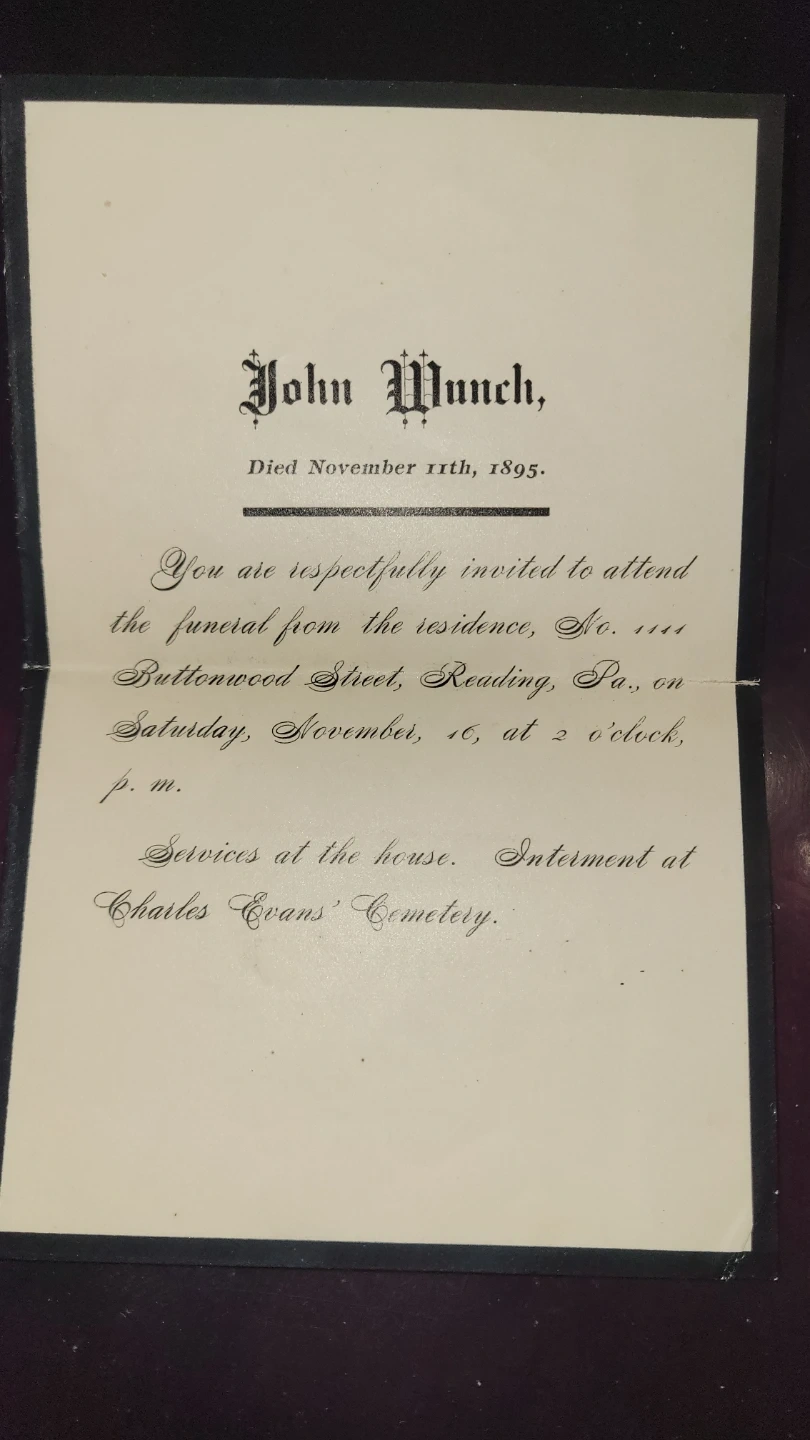 John Wunch,
Died November 11th, 1895.
You are respectfully invited to attend
the funeral from the residence, No. 1111
Buttonwood Street, Reading, Pa., on
Saturday, November, 16, at 2 o'clock,
p. m.
Services at the house. Interment at
Charles Evans' Cemetery.